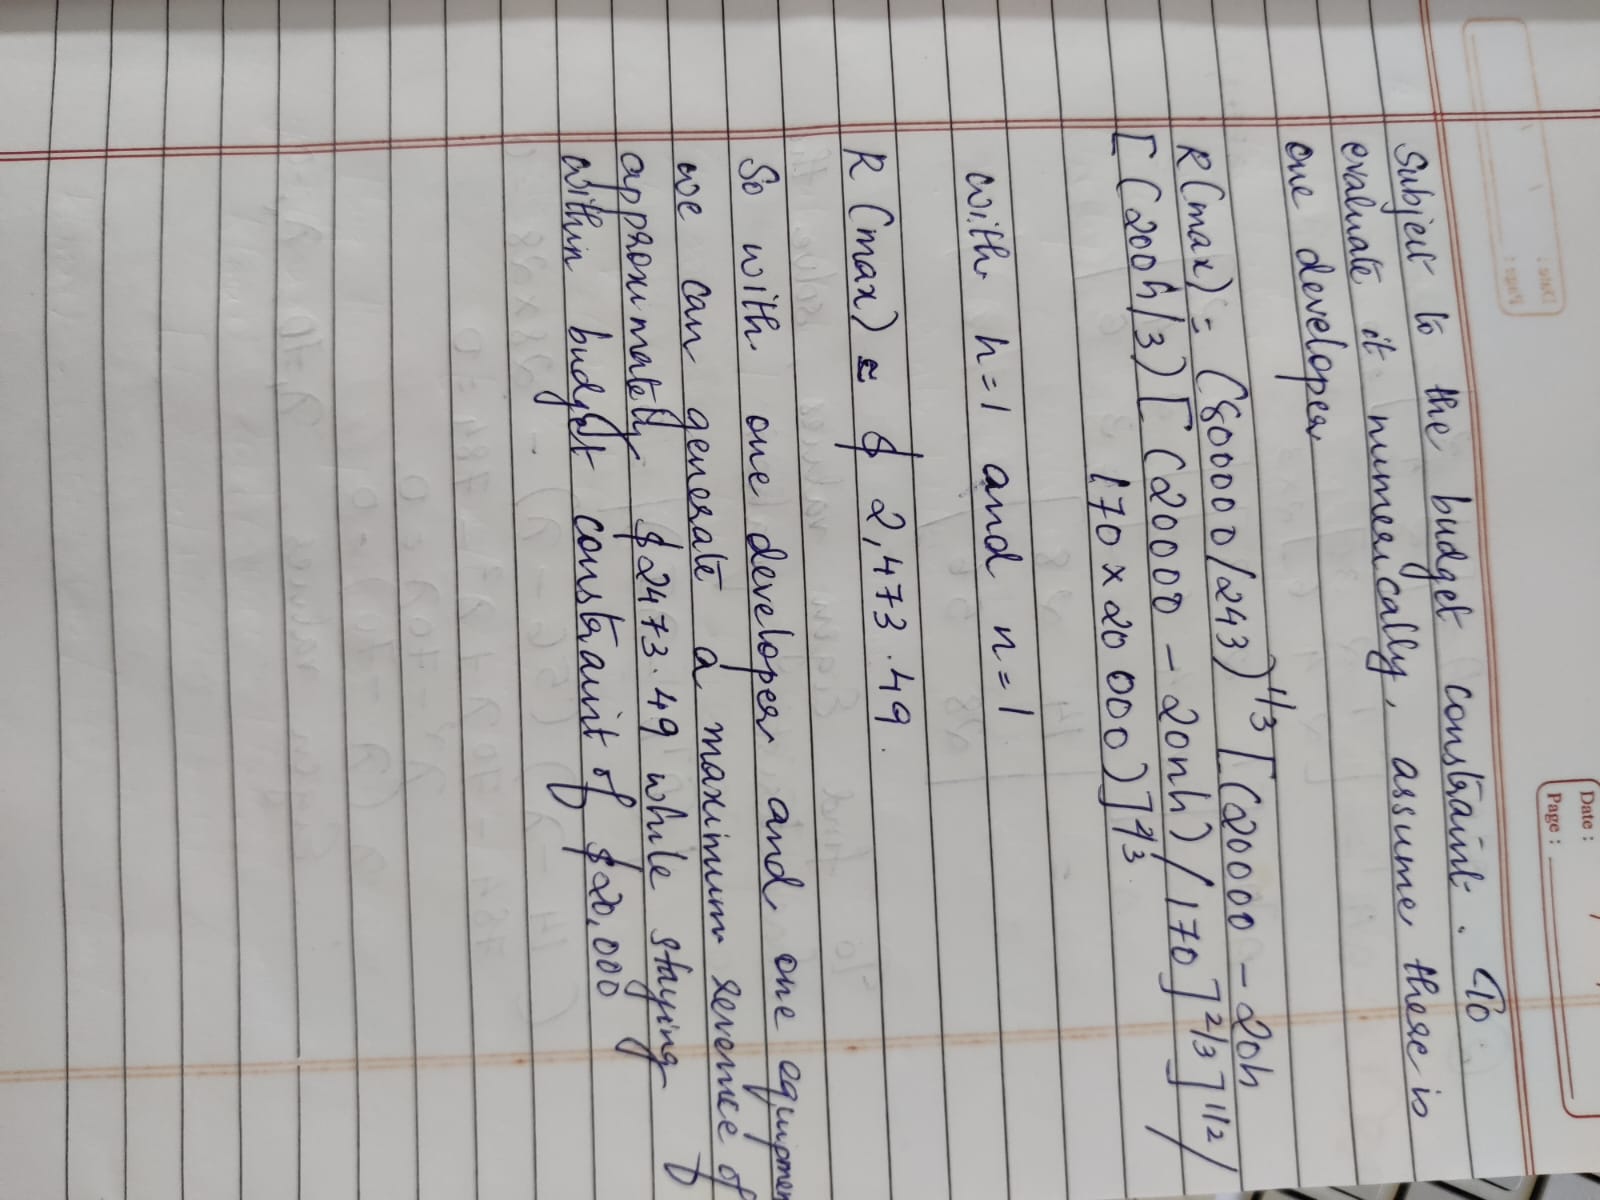 Date :
Page :
Subject to the budget constraint. To
evaluate it numerically, assume there is
one developer
R(max) = (800000/243)^1/3 [(20000 - 20h
[(200h/3) [(20000 - 20nh)/170]^2/3]^1/2/
170 × 20000)]^2/3.
with h=1 and n=1
R(max) ≈ $ 2,473.49.
So with one developer and one equipmen
we can generate a maximum revenue of
approximately $2473.49 while staying
within budget constraint of $20,000